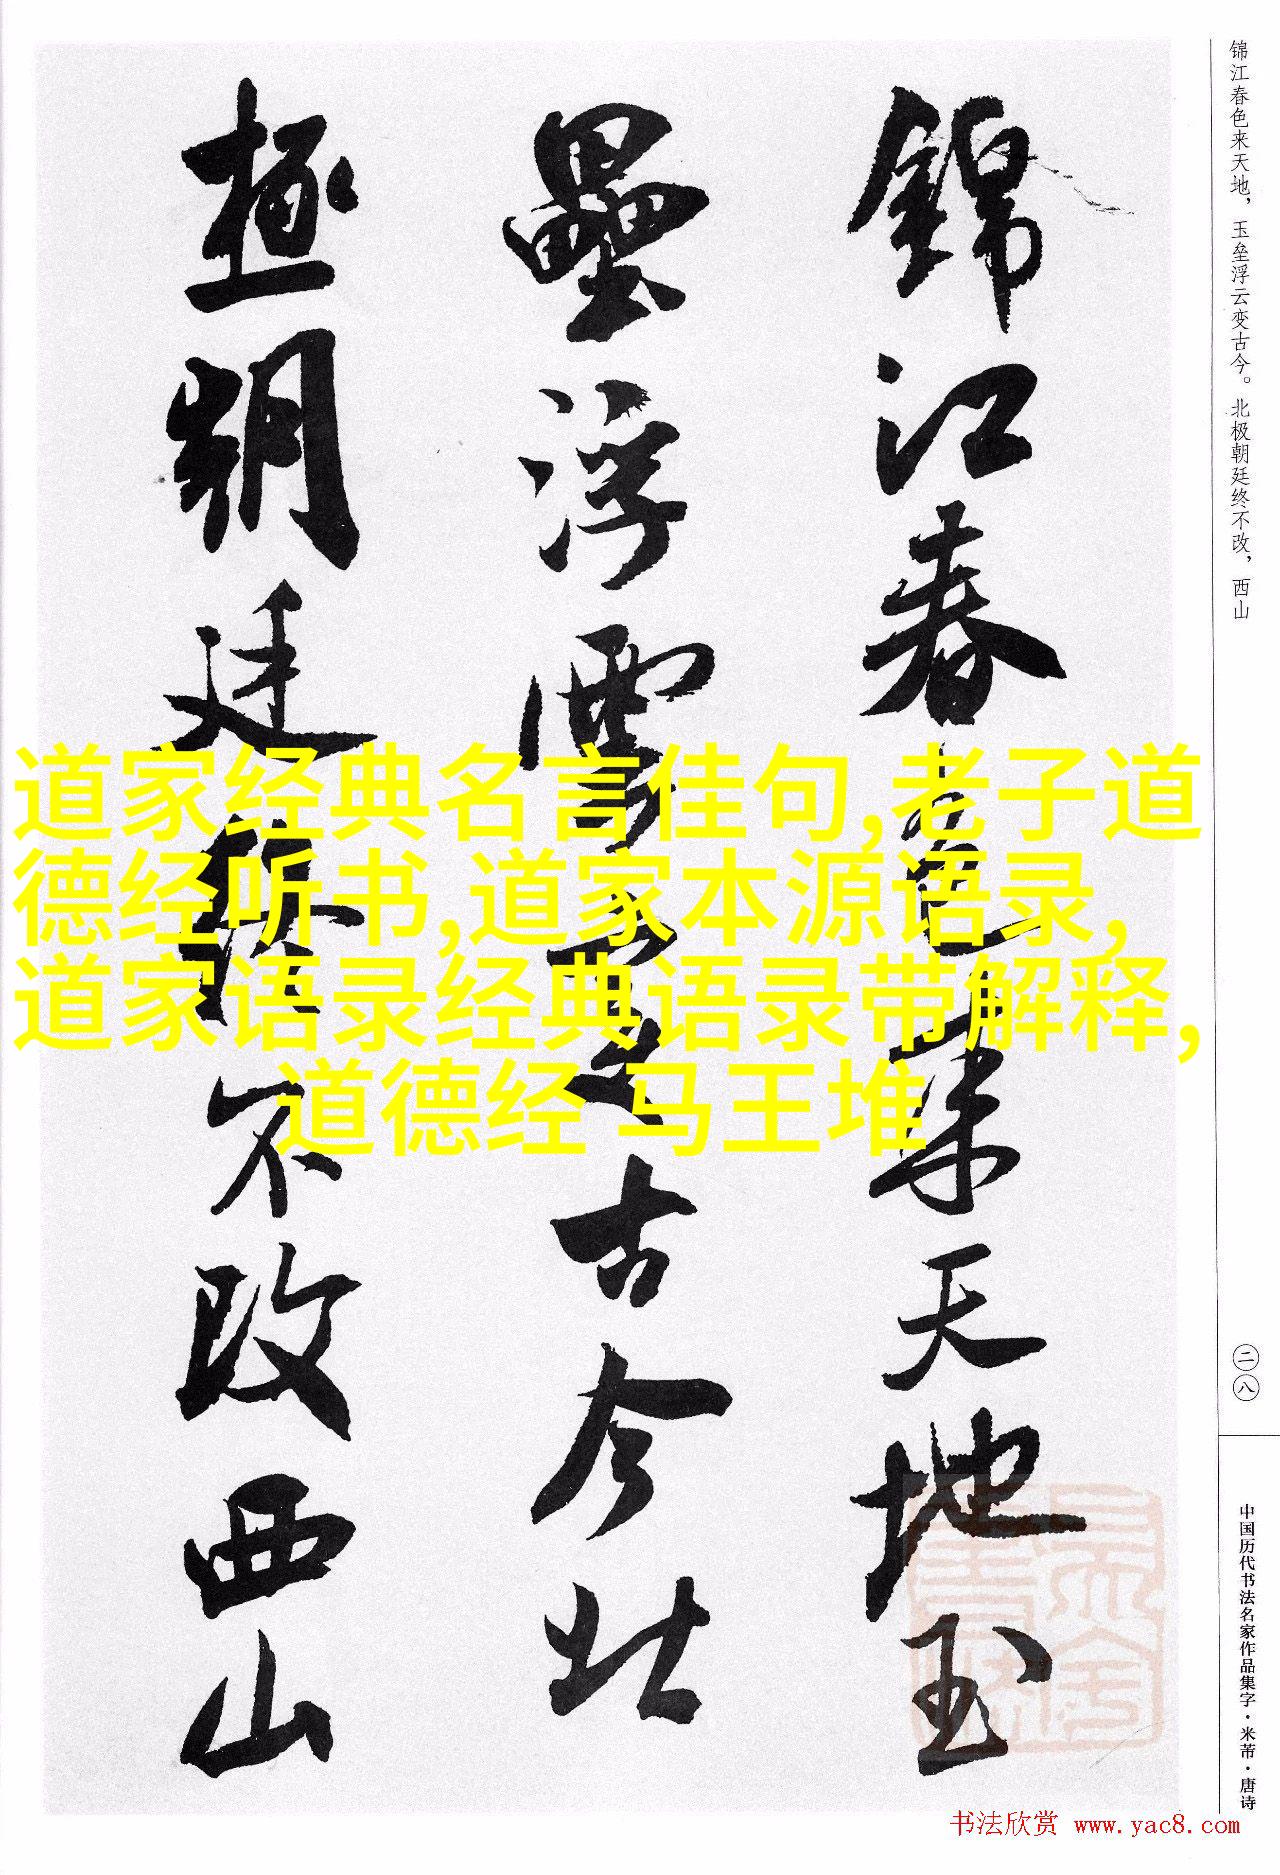 锦江春色来天地，玉垒浮云变古今。北极朝廷终不改，西山
錦江春色来天地玉
壘浮雲變古今北
極朝廷終不改西山
道家经典名言佳句,老子道
德经听书,道家本源语录,
道家语录经典语录带解释,
道德经 马王堆
二八
中国历代书法名家作品集字·米芾·唐诗
书法欣赏 www.yac8.com